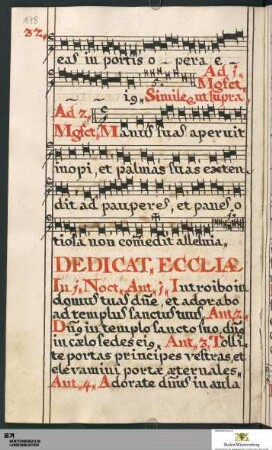 178
32.
eas in portis o pera e
Ad j.
Mgfct.
ig. Simile ut supra.
Ad 2.
Mgfct. Manus suas aperuit
inopi, et palmas suas exten
dit ad pauperes, et panes o
tiosa non comedit alleluia.
DEDICAT. ECCLIÆ
In j. Noct. Ant. j. Introibo in
domum tuam dñe, et adorabo
ad templum sanctum tuum. Ant. 2.
Dñs in templo sancto suo, dñs
in cælo sedes eig. Ant. 3. Tolli
te portas principes vestras, et
elevamini portæ æternales.
Ant. 4. Adorate dnm in aula
Baden-Württemberg